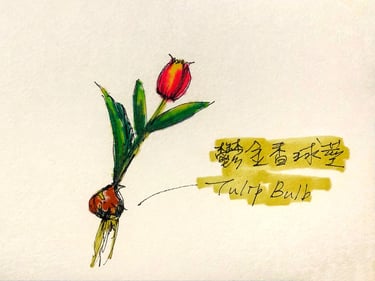 鬱金香球莖
Tulip Bulb